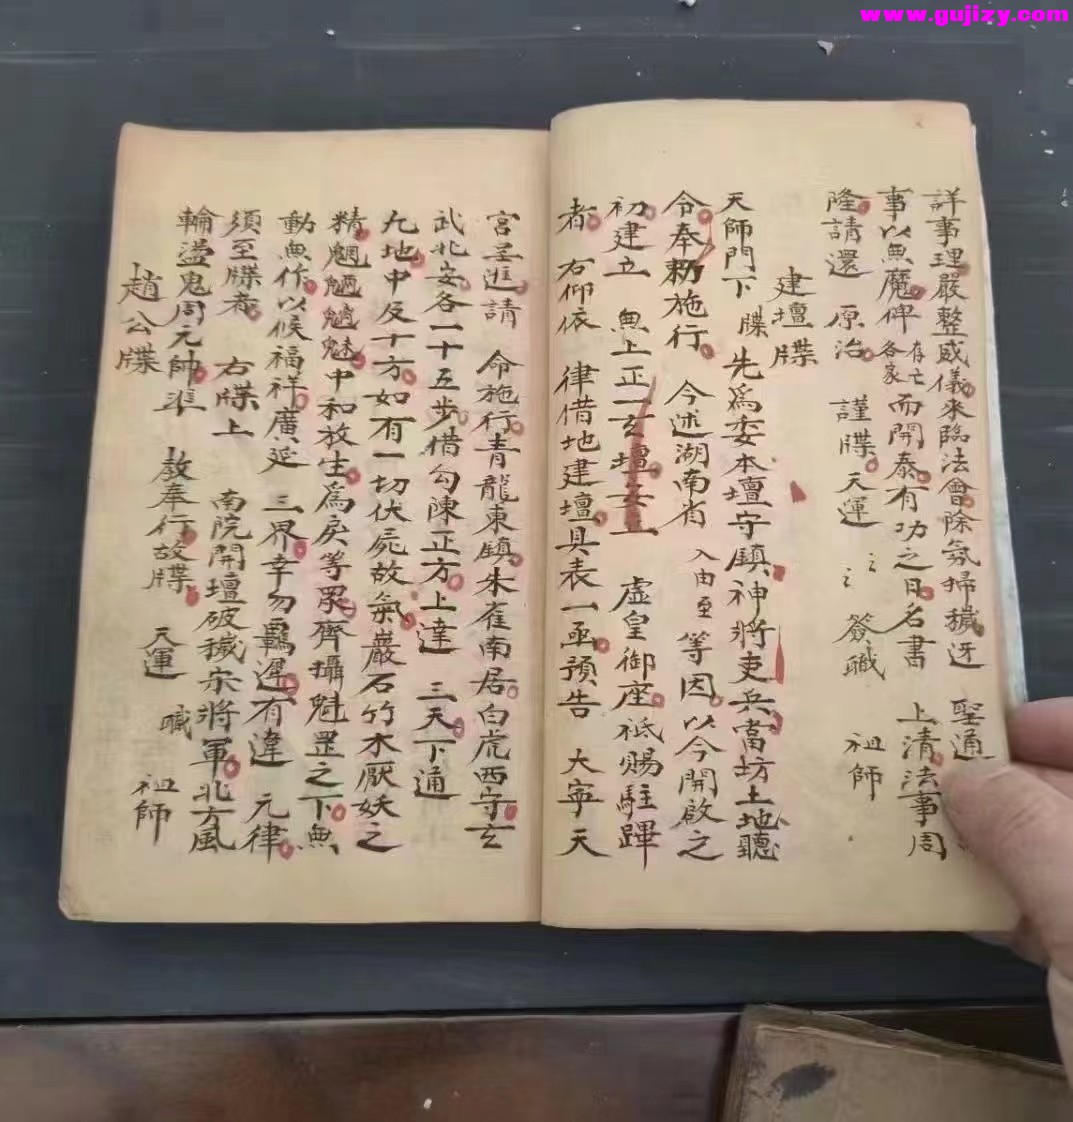 www.gujizy.com
詳事理嚴整威儀來臨法會除氛掃穢迓 聖通
事以無魔俾存亡各家而開泰有功之日名書 上清法事周
隆請還 原治 謹牒 天運 簽職 祖師
建壇牒
天師門下 牒 先為委本壇守鎮神將吏兵當坊土地聽
令奉勑施行 今述湖南省 入由至 等因以今開啟之
初建立 無上正一玄壇一並 虛皇御座祗賜駐蹕
者 右仰依 律借地建壇具表一函預告 大寧天
宮呈進請 命施行青龍東鎮朱雀南居白虎西守玄
武北安各一十五步借勾陳正方上達 三天下通
九地中及十方如有一切伏屍故氣巖石竹木厭妖之
精魍魎魑魅中和放生為戾等眾齊攝魁罡之下無
動無作以候福祥廣延 三界幸勿羈遲有違 元律
須至牒者 右牒上 南院開壇破穢宋將軍北方風
輪盪鬼周元帥准 教奉行故牒 天運 職 祖師
趙公牒